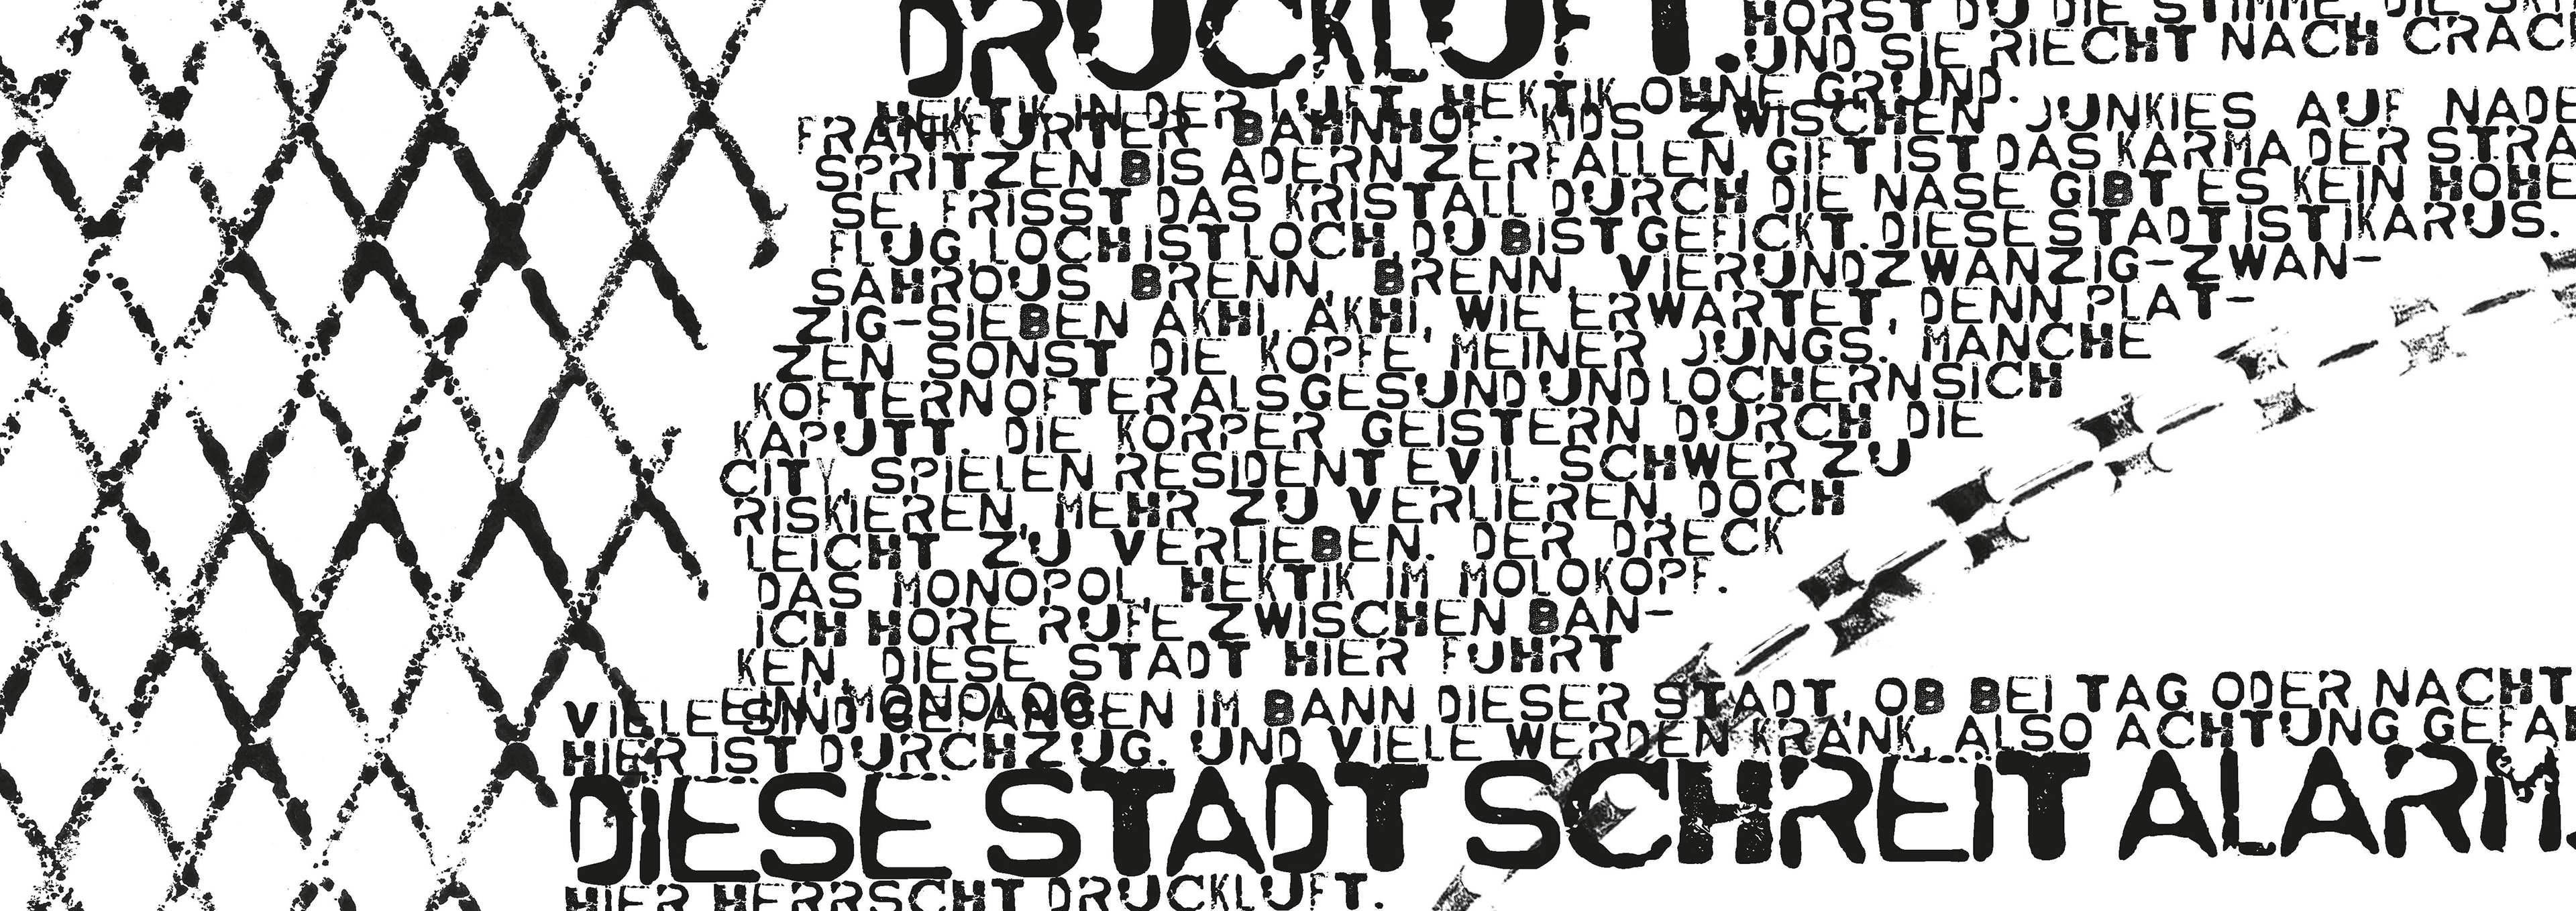 DRUCKLUFT.
HORST DU DIE STIMME, DIE
UND SIE RIECHT NACH CRAC
HEKTIK IN DER LUFT, HEKTIK OHNE GRUND.
FRANKFURTER BAHNHOF. KIDS ZWISCHEN JUNKIES AUF NADE
SPRITZEN BIS ADERN ZERFALLEN, GIFT IST DAS KARMA DER STRA
SE, FRISST DAS KRISTALL DURCH DIE NASE GIBT ES KEIN HOHE
FLUG, LOCH IST LOCH, DU BIST GEFICKT. DIESE STADT IST IKARUS.
SAHROUS BRENN, BRENN, VIERUNDZWANZIG-ZWAN-
ZIG-SIEBEN AKHI, AKHI, WIE ERWARTET, DENN PLAT-
ZEN SONST DIE KOPFE MEINER JUNGS. MANCHE
KOFTERN OFTER ALS GESUND UND LOCHERN SICH
KAPUTT. DIE KORPER GEISTERN DURCH DIE
CITY, SPIELEN RESIDENT EVIL. SCHWER ZU
RISKIEREN, MEHR ZU VERLIEREN, DOCH
LEICHT ZU VERLIEBEN. DER DRECK
DAS MONOPOL, HEKTIK IM MOLOKOPF.
ICH HORE RUFE ZWISCHEN BAN-
KEN, DIESE STADT HIER FUHRT
EIN MONOLOG.
VIELE SIND GEFANGEN IM BANN DIESER STADT, OB BEI TAG ODER NACHT,
HIER IST DURCHZUG. UND VIELE WERDEN KRANK, ALSO ACHTUNG GEFA
DIESE STADT SCHREIT ALARM
HIER HERRSCHT DRUCKLUFT.